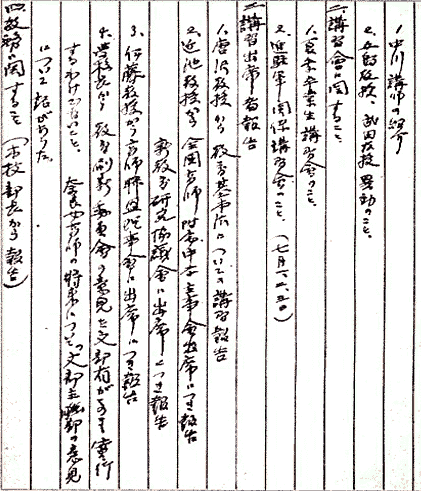 1、中川講師の紹介
2、教授、武田教授異動のこと、
二、講習会に関すること
1、夏季卒業生講習会のこと、
2、進駐軍関係講習会のこと、(七月
三、講習出席者報告
1、唐沢教授から教育基本法についての講習報告
2、近池教授から全国高師附属中等主事会出席につき報告
教育研究協議会に出席につき報告
3、伊藤教授から高師聯盟理事会に出席につき報告
4、学校長から教育刷新委員会の意見を文部省がそのまま実行
するわけでないこと、奈良女高師の将来について文部主脳部の意見
について話があった、
四、教務に関すること(本校部長から報告)